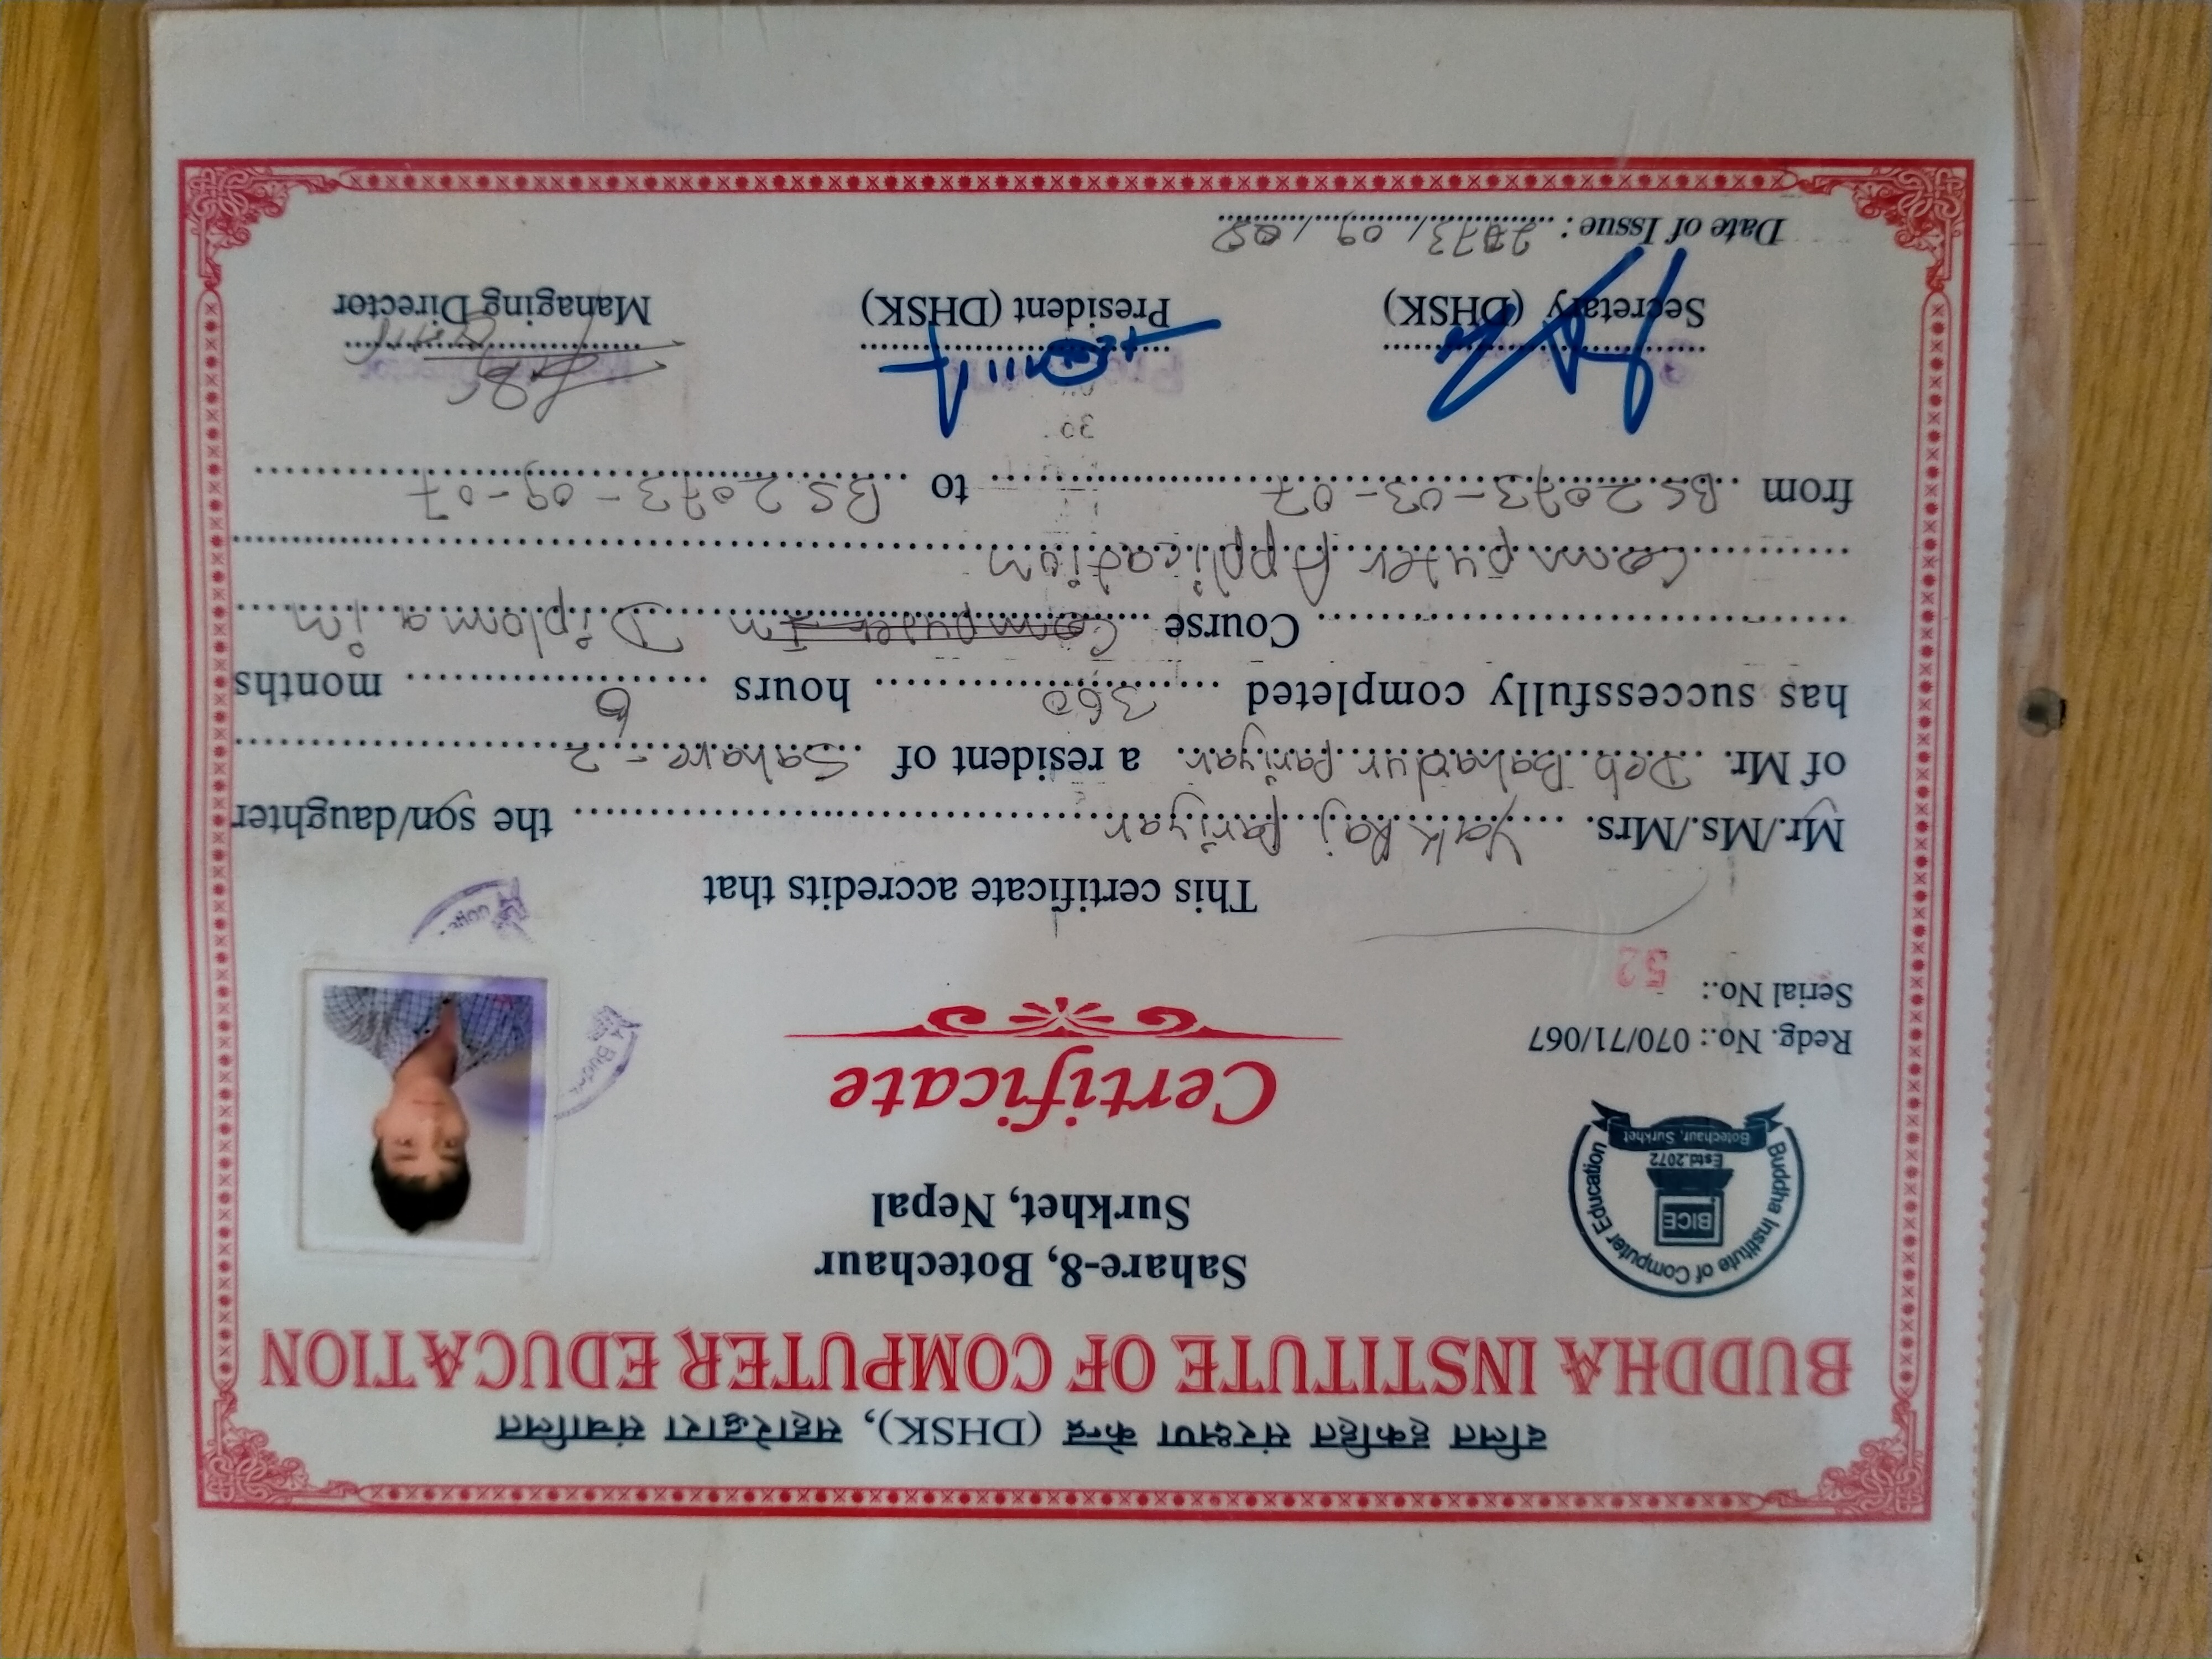 दलित हकहित संरक्षण केन्द्र (DHSK), सहारेद्वारा संचालित
BUDDHA INSTITUTE OF COMPUTER EDUCATION
Sahare-8, Botechaur
Surkhet, Nepal
Buddha Institute of Computer Education
BICE
Estd.2072
Botechaur, Surkhet
Certificate
Redg. No.: 070/71/067
Serial No.: 52
This certificate accredits that
Mr./Ms./Mrs. Yak Raj Pariyar the son/daughter
of Mr. Deb Bahadur Pariyar a resident of Sahare-2
has successfully completed 360 hours 6 months
Course Diploma in
Computer Application
from BS 2073-03-07 to BS 2073-09-07
Secretary (DHSK) President (DHSK) Managing Director
Date of Issue : 2073/09/08